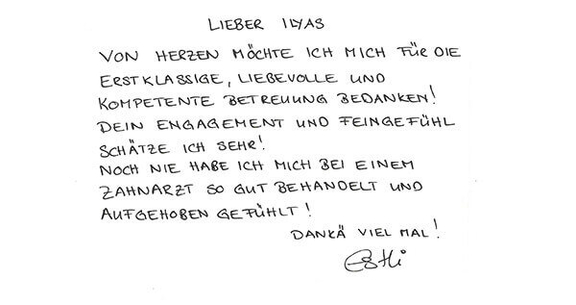 LIEBER ILYAS
VON HERZEN MÖCHTE ICH MICH FÜR DIE
ERSTKLASSIGE, LIEBEVOLLE UND
KOMPETENTE BETREUUNG BEDANKEN!
DEIN ENGAGEMENT UND FEINGEFÜHL
SCHÄTZE ICH SEHR!
NOCH NIE HABE ICH MICH BEI EINEM
ZAHNARZT SO GUT BEHANDELT UND
AUFGEHOBEN GEFÜHLT!
DANKÄ VIEL MAL!